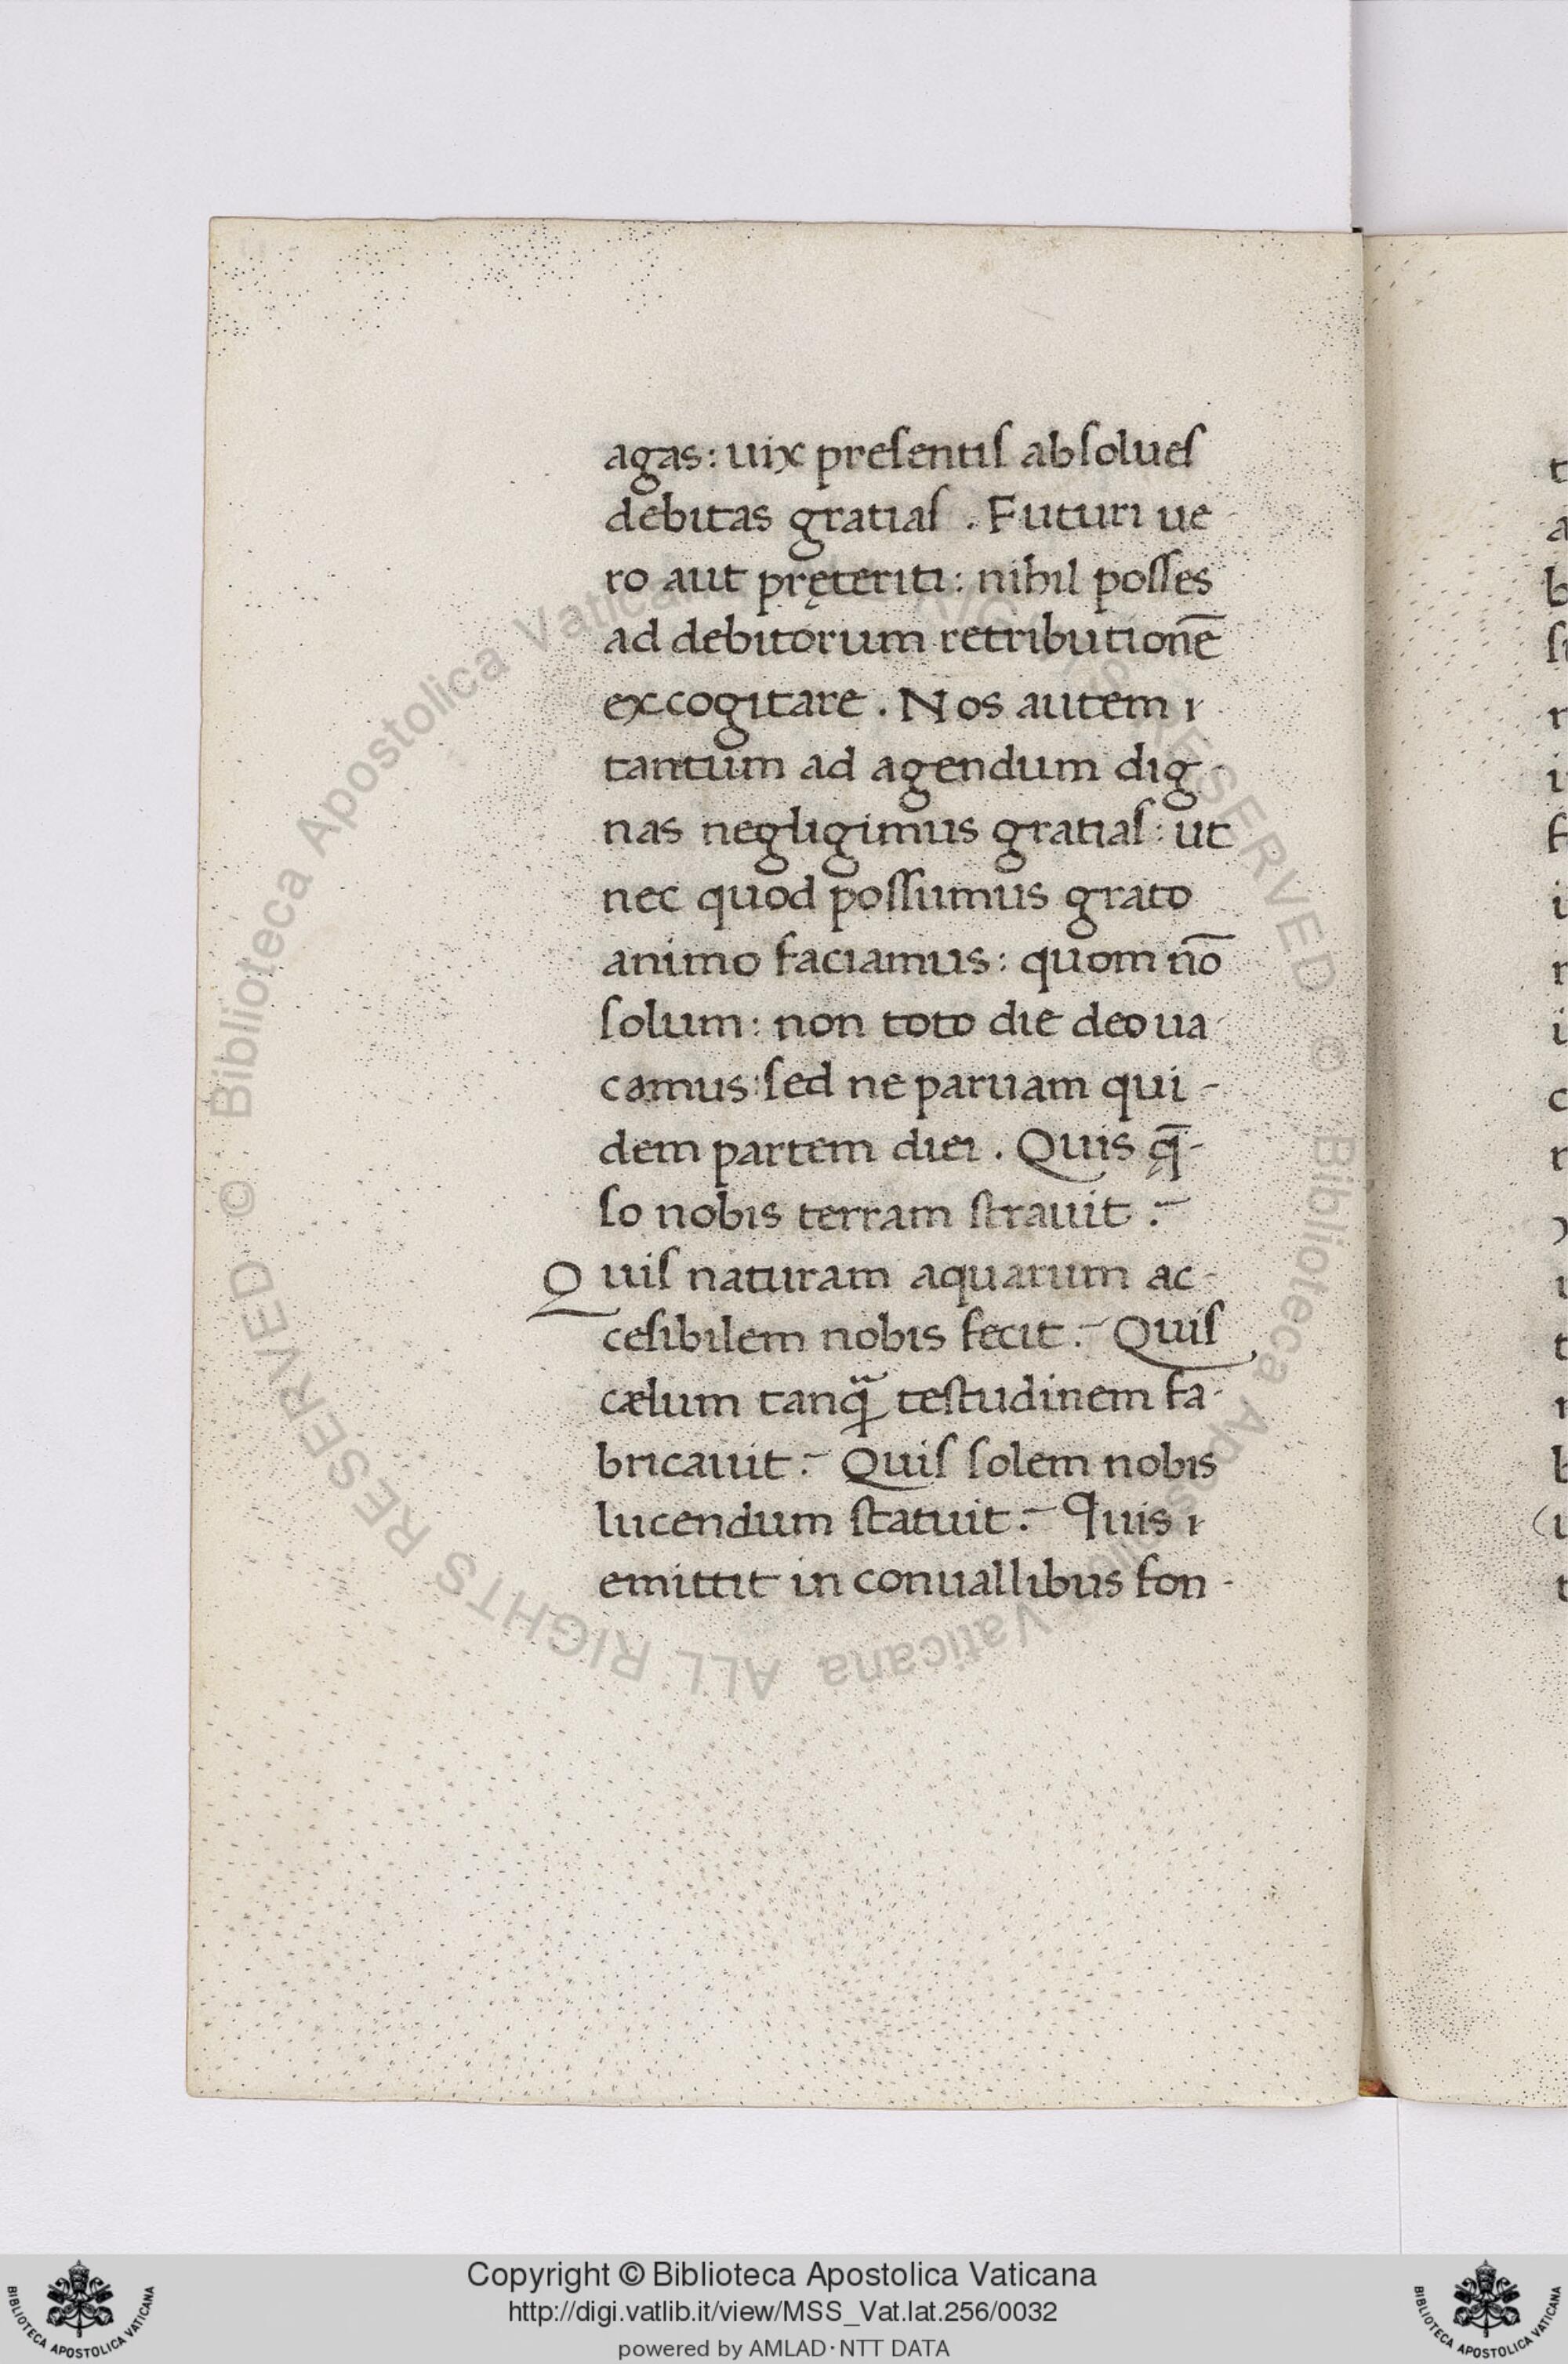 agas: uix preſentiſ abſolueſ
debitas gratiaſ . Futuri ue
ro aut pręteriti: nihil poſſes
ad debitorum retributionē
excogitare . Nos autem ı
tantum ad agendum dig-
nas negligimus gratiaſ: ut
nec quod poſſumus grato
animo faciamus: quom nō
ſolum: non toto die deo ua
camus: ſed ne paruam qui-
dem partem diei . Quis q̄-
ſo nobis terram ſtrauit ?
Quiſ naturam aquarum ac-
ceſibilem nobis fecit ? Quiſ
cælum tanq̃ teſtudinem fa-
bricauit ? Quiſ ſolem nobis
lucendum ſtatuit ? Quis ı
emittit in conuallibus fon-
Copyright © Biblioteca Apostolica Vaticana
http://digi.vatlib.it/view/MSS_Vat.lat.256/0032
powered by AMLAD·NTT DATA
BIBLIOTECA APOSTOLICA VATICANA
BIBLIOTECA APOSTOLICA VATICANA
© Biblioteca Apostolica Vaticana ALL RIGHTS RESERVED
© Biblioteca Apostolica Vaticana ALL RIGHTS RESERVED